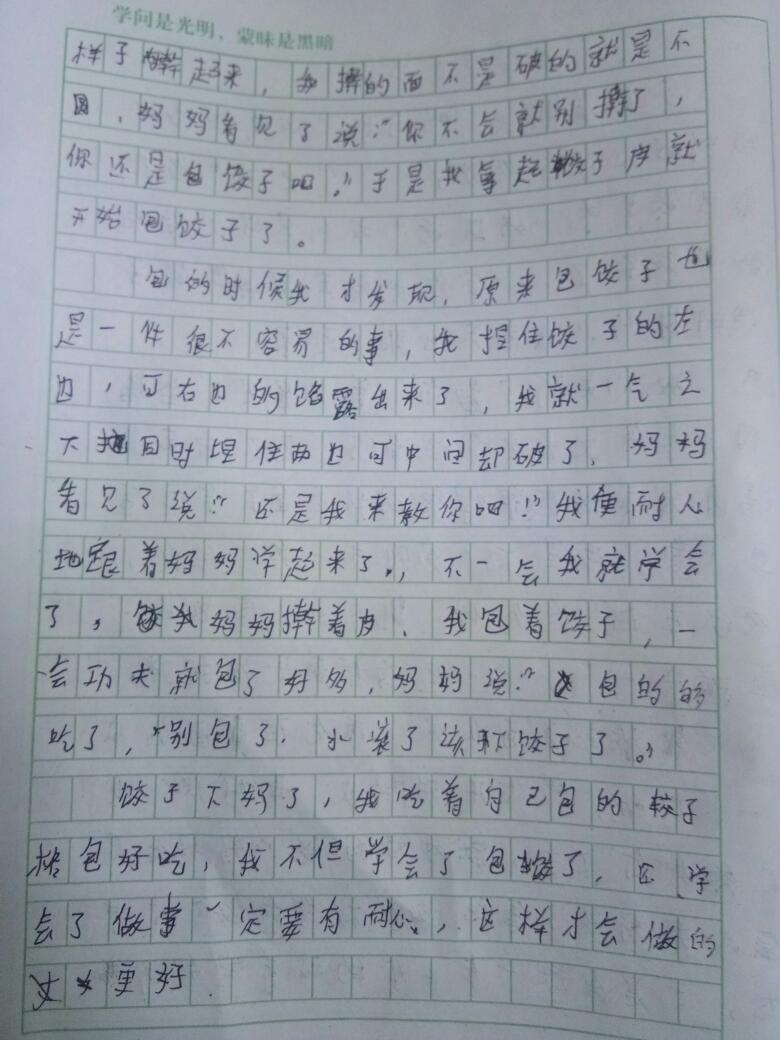 学问是光明、蒙昧是黑暗
样子擀起来，我擀的面不是破的就是不
圆，妈妈看见了说：“你不会就别擀了，
你还是包饺子吧。”于是我拿起饺子皮就
开始包饺子了。
包的时候我才发现，原来包饺子也
是一件很不容易的事，我捏住饺子的左
边，可右边的馅露出来了，我就一气之
下同时捏住两边可中间却破了，妈妈
看见了说：“还是我来教你吧！”我便耐心
地跟着妈妈学起来了，不一会我就学会
了，妈妈擀着皮，我包着饺子，一
会功夫就包了好多，妈妈说：“包的够
吃了，“别包了，水滚了该下饺子了。”
饺子下好了，我吃着自己包的较子
包好吃，我不但学会了包饺了，还学
会了做事一定要有耐心，这样才会做的
更好